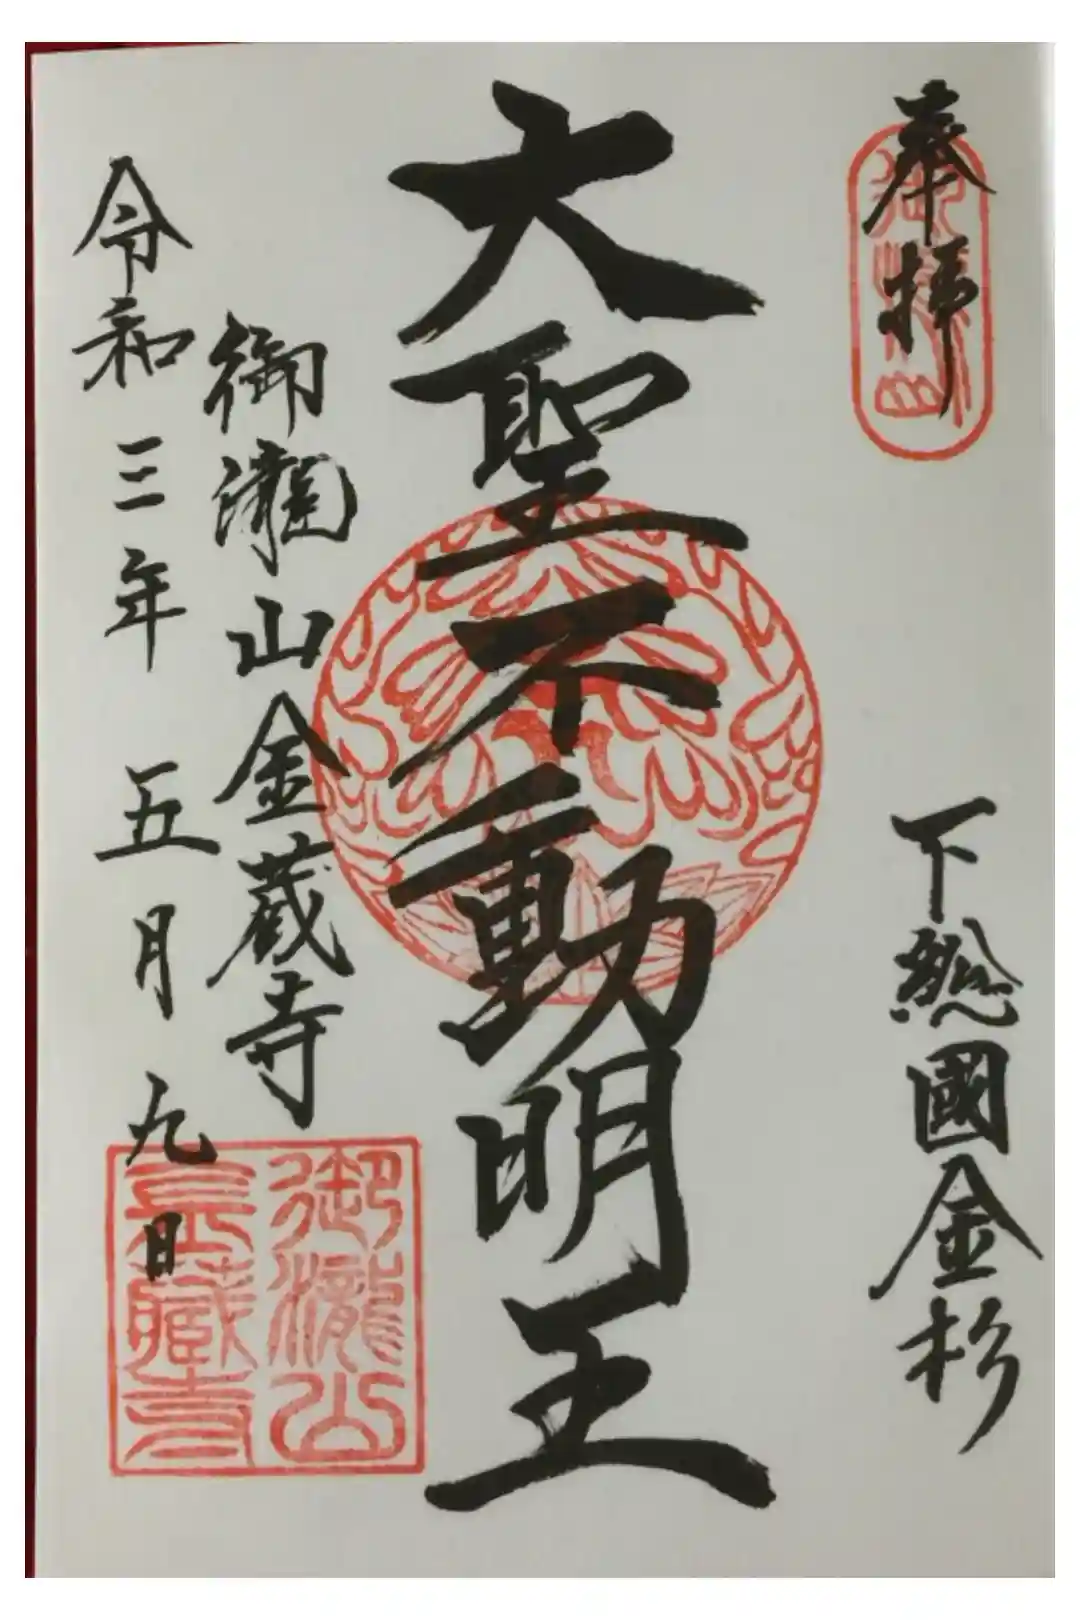 奉拝
下総國金杉
大聖不動明王
御瀧山金蔵寺
令和三年 五月九日
御瀧山
金蔵寺